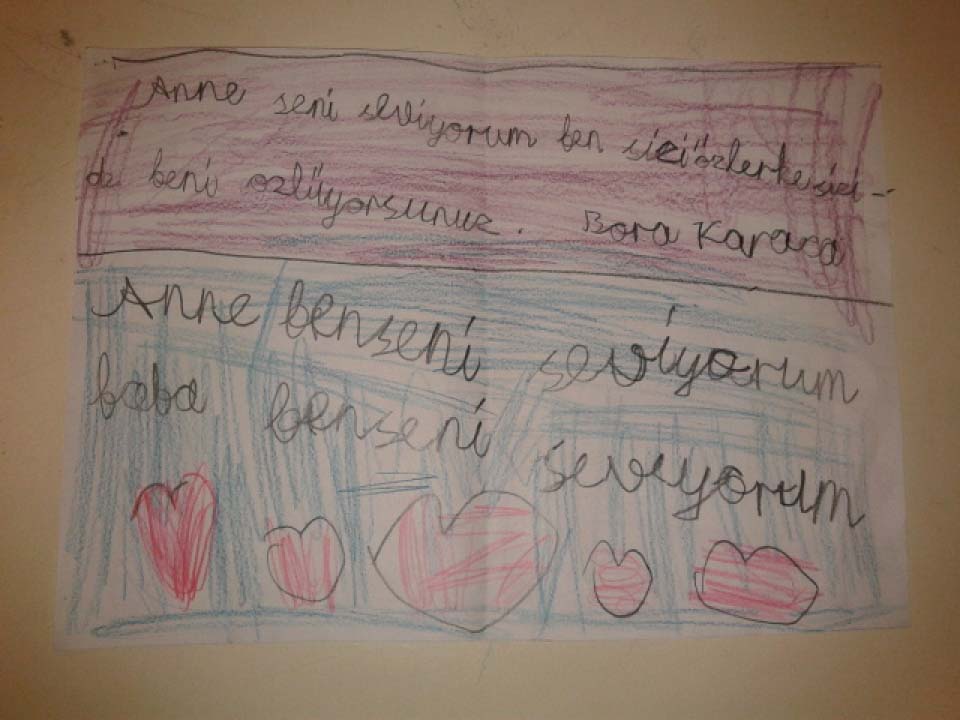 Anne seni seviyorum ben siziözlerkesizi-
de beni özlüyorsunuz. Bora Karaca
Anne benseni seviyorum
baba benseni seviyorum